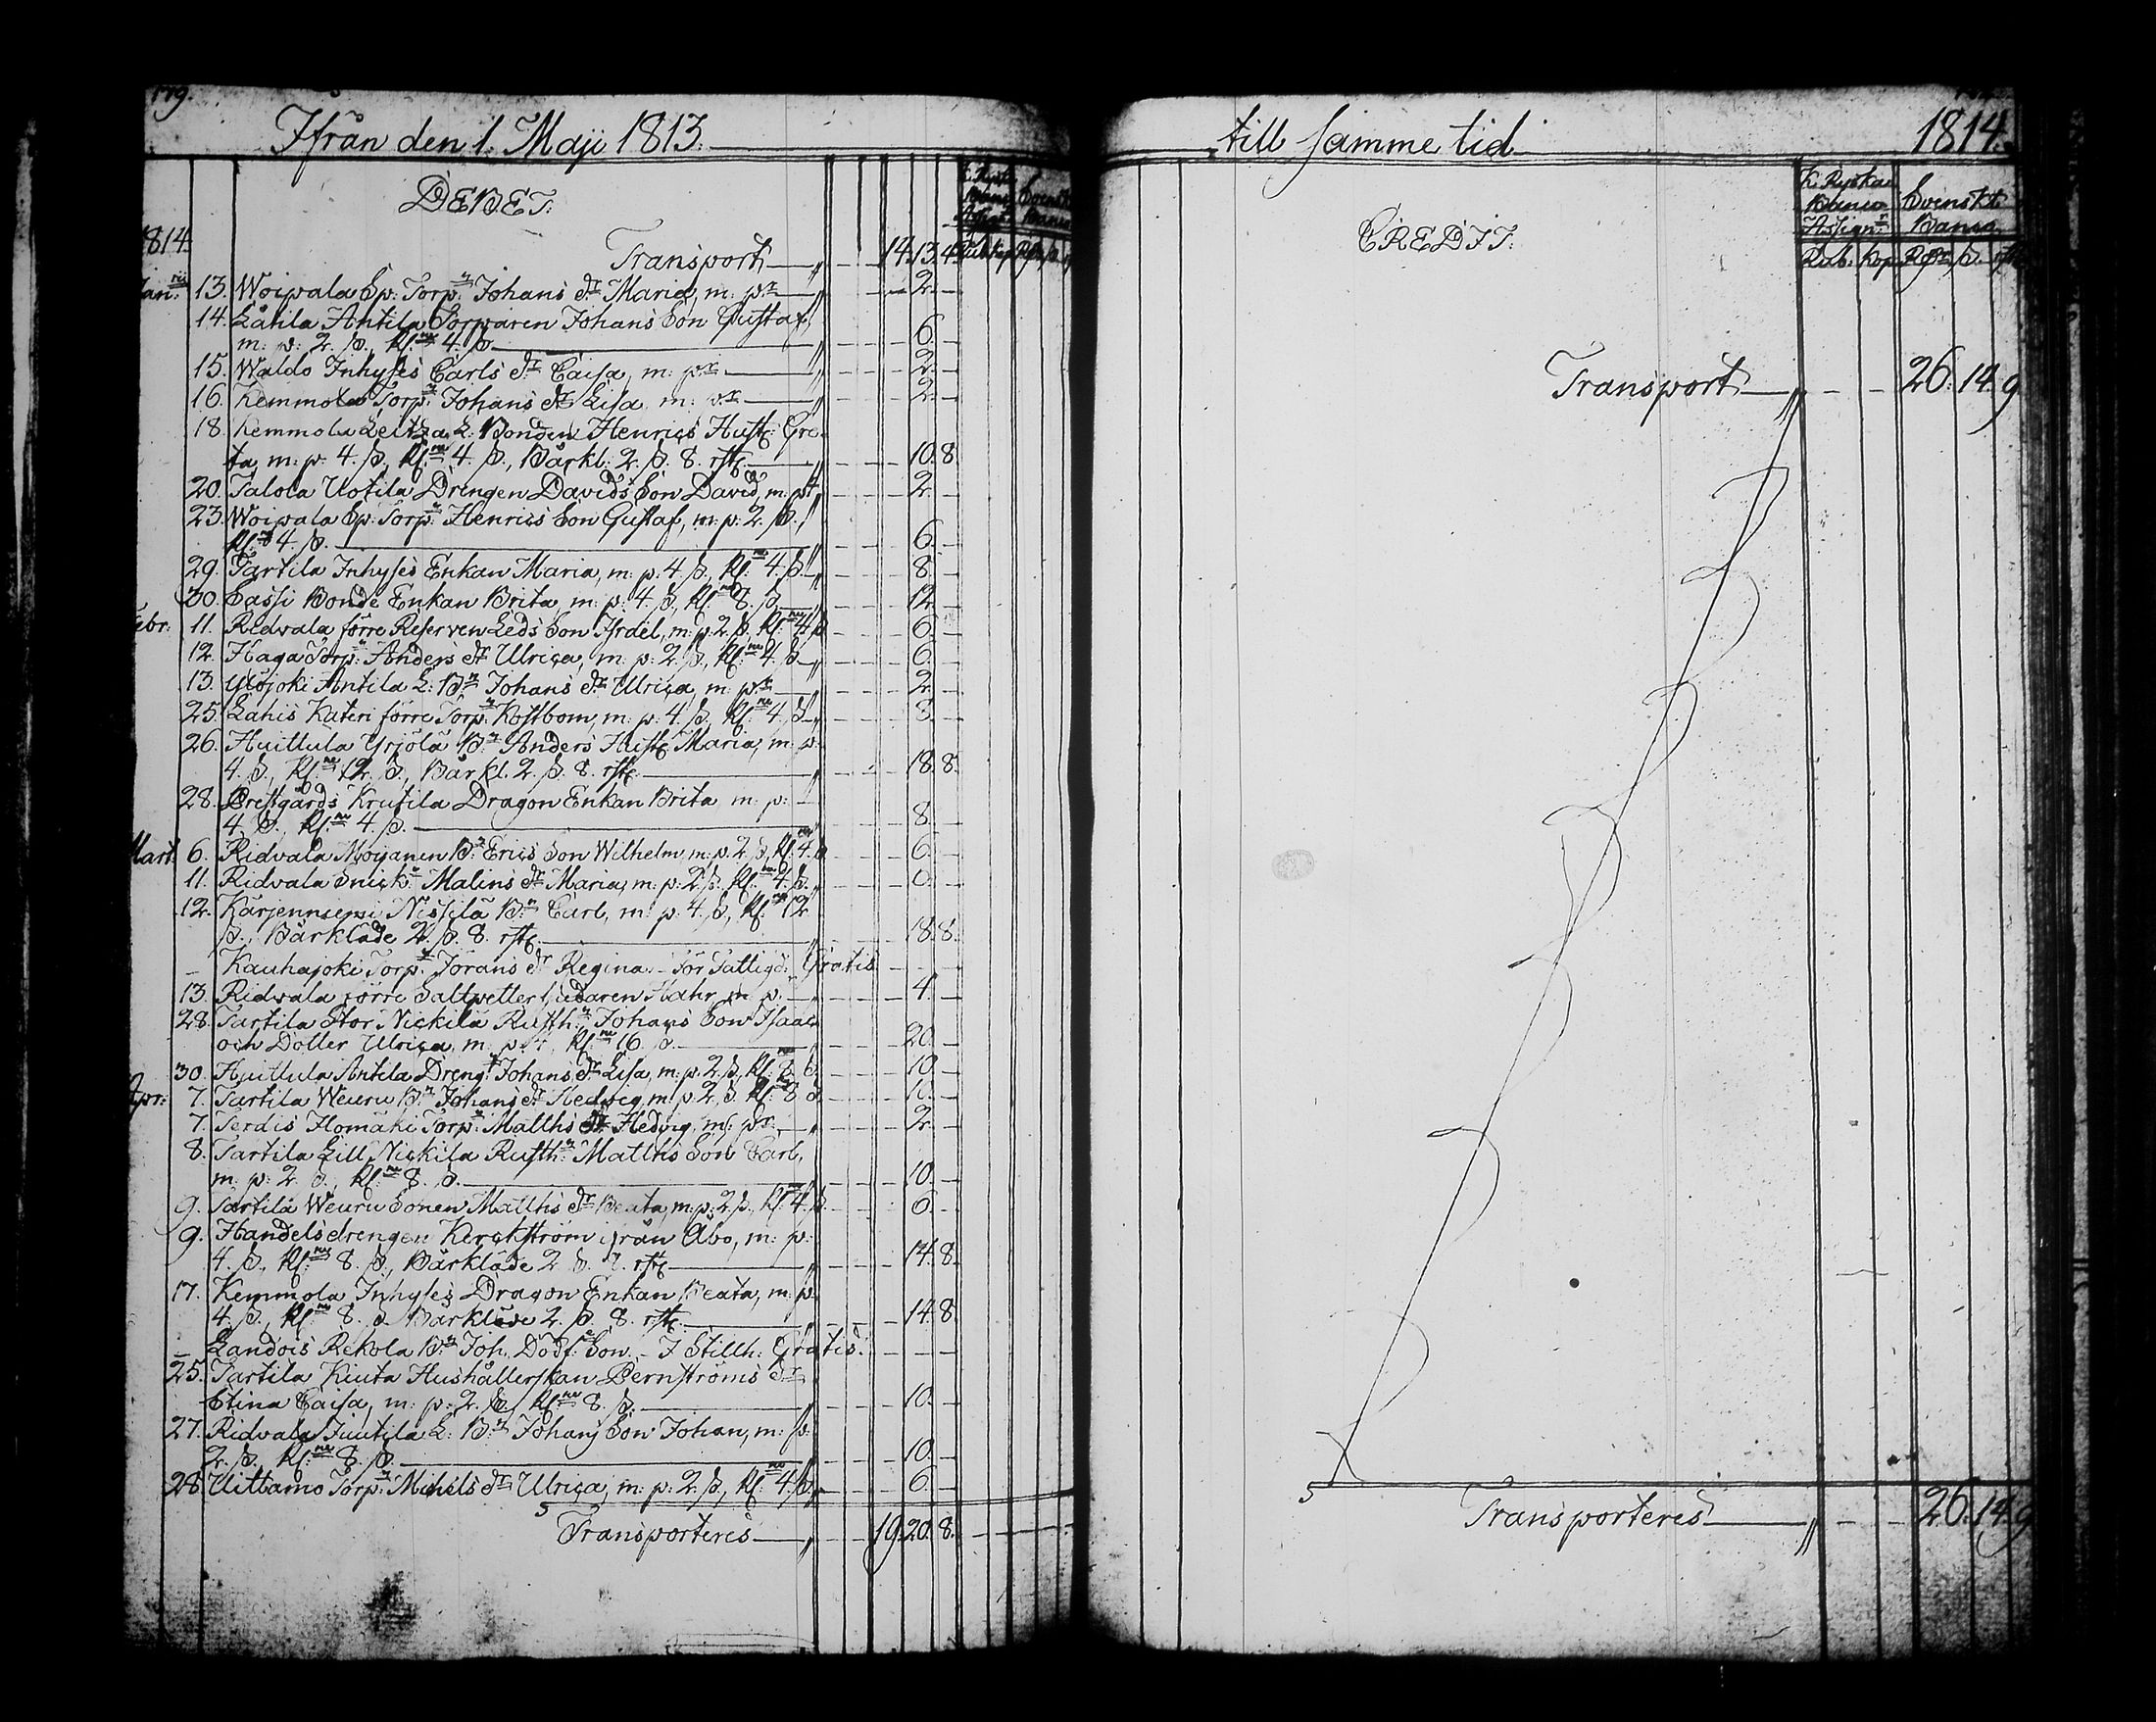 179.
Ifrån den 1. Maji 1813.
DEBET:
K. Ryska Banco Assign:r
Svenskt Banco
1814.
Transport 14. 13. 4.
Rub: kop: R:dr ß. rst.
Janrii 13. Woipala Sp: Torp:n Johans dr Maria, m: p:r 2.
14. Låtila Antila Torparen Johans Son Gustaf,
m: p: 2. ß., Kl:ne 4. ß. 6.
15. Waldo Inhyses Carls dr Caisa, m: p:r 2.
16. Kemmola Torp:n Johans dr Lisa, m: p:r 2.
18. Kemmola Leikka L: Bonden Henrics Hustr: Gre-
ta, m: p: 4. ß., Kl:ne 4. ß., Bårkl: 2. ß. 8. rst. 10. 8.
20. Talola Uotila Drengen Davids Son David, m: p:r 2.
23. Woipala Sp: Torp:n Henrics Son Gustaf, m: p: 2. ß.
Kl:ne 4. ß. 6.
29. Tartila Inhyses Enkan Maria, m: p: 4. ß., Kl:ne 4. ß. 8.
30. Sassi Bonde Enkan Brita, m: p: 4. ß., Kl:ne 8. ß. 12.
Febr: 11. Ridvala förre Reserven Leds Son Israel, m: p: 2. ß., Kl:ne 4. ß 6.
12. Haga Torp:n Anders dr Ulrica, m: p: 2. ß., Kl:ne 4. ß. 6.
13. Ylöjoki Antila L: B:n Johans dr Ulrica, m: p:r 2.
25. Lahis Kateri förre Torp:n Kostbom, m: p: 4. ß., Kl:ne 4. ß. 8.
26. Huittula Yrjölä B:n Anders Hustr: Maria, m: p:
4. ß., Kl:ne 12. ß., Bårkl. 2. ß. 8. rst. 18. 8.
28. Prestgårds Krutila Dragon Enkan Brita m: p:
4. ß., Kl:ne 4. ß. 8.
Mart: 6. Ridvala Moijanen B:n Erics Son Wilhelm, m: p: 2. ß., Kl:ne 4. ß 6.
11. Ridvala Snick:n Malins dr Maria, m: p: 2. ß., Kl:ne 4. ß. 6.
12. Kärjenniemi Nissilä B:n Carl, m: p: 4. ß., Kl:ne 12
ß., Bårkläde 2. ß. 8. rst. 18. 8.
Kauhajoki Torp:n Jörans dr Regina. För Fattigd: Gratis
13. Ridvala förre Saltpettersjudaren Hahr, m: p: 4.
28. Tartila Stor Nickilä Rusth:n Johans Son Isaac
och Dotter Ulrica, m: p: 4, Kl:ne 16. ß. 20.
30. Huittula Antila Dreng:s Johans dr Lisa, m: p: 2. ß., Kl:ne 8. ß. 10.
Apr: 7. Tartila Weuru B:n Johans dr Hedvig, m: p: 2. ß. Kl:ne 8 ß. 10.
7. Terdis Homäki Torp:n Matths dr Hedvig, m: p:r 2.
8. Tartila Lill Nickila Rusth:n Matths Son Carl,
m: p: 2. ß., Kl:ne 8. ß. 10.
9. Tartila Weuru Sonen Matths dr Beata, m: p: 2. ß., Kl:ne 4. ß. 6.
9. Handelsdrengen Kerckström ifrån Åbo, m: p:
4. ß., Kl:ne 8. ß., Bårkläde 2. ß. 8. rst. 14. 8.
17. Kemmola Inhyses Dragon Enkan Beata, m: p:
4. ß., Kl:ne 8. ß. Bårkläde 2. ß. 8. rst. 14. 8.
Landois Rekola B:n Joh. Dödf: Son. I Stillh: Gratis.
25. Tartila Kiuta Hushållerskan Bernströms dr
Stina Caisa, m: p: 2. ß., Kl:ne 8. ß. 10.
27. Ridvala Juutila L: B:n Johans Son Johan, m: p:
2. ß., Kl:ne 8. ß. 10.
28. Uittamo Torp:n Michels dr Ulrica, m: p: 2. ß., Kl:ne 4. ß. 6.
Transporteres 19. 20. 8.
till samme tid 1814.
CREDIT:
K. Ryska Banco Assign:r
Svenskt Banco.
Rub: kop R:dr ß. rst
Transport 26. 14. 9
Transporteres 26. 14. 9